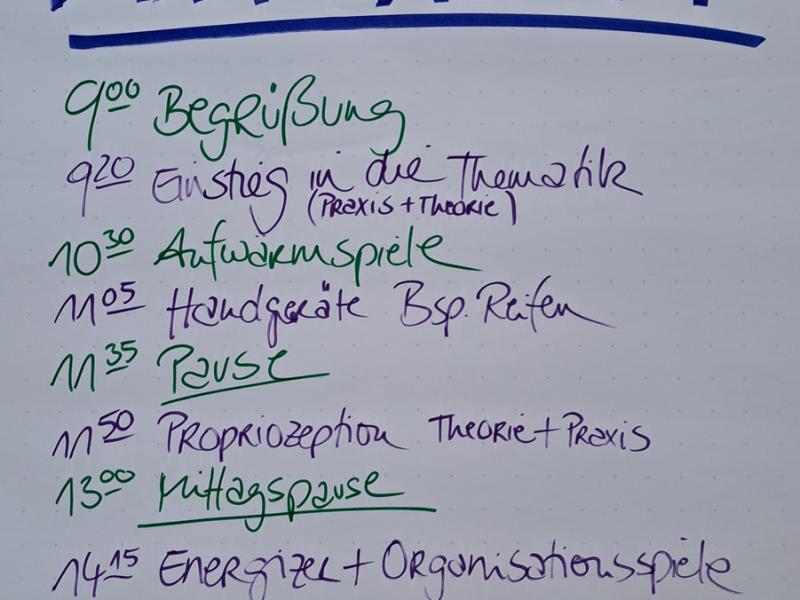 9⁰⁰ Begrüßung
9²⁰ Einstieg in die Thematik
(Praxis + Theorie)
10³⁰ Aufwärmspiele
11⁰⁵ Handgeräte Bsp. Reifen
11³⁵ Pause
11⁵⁰ Propriozeption Theorie + Praxis
13⁰⁰ Mittagspause
14¹⁵ Energizer + Organisationsspiele